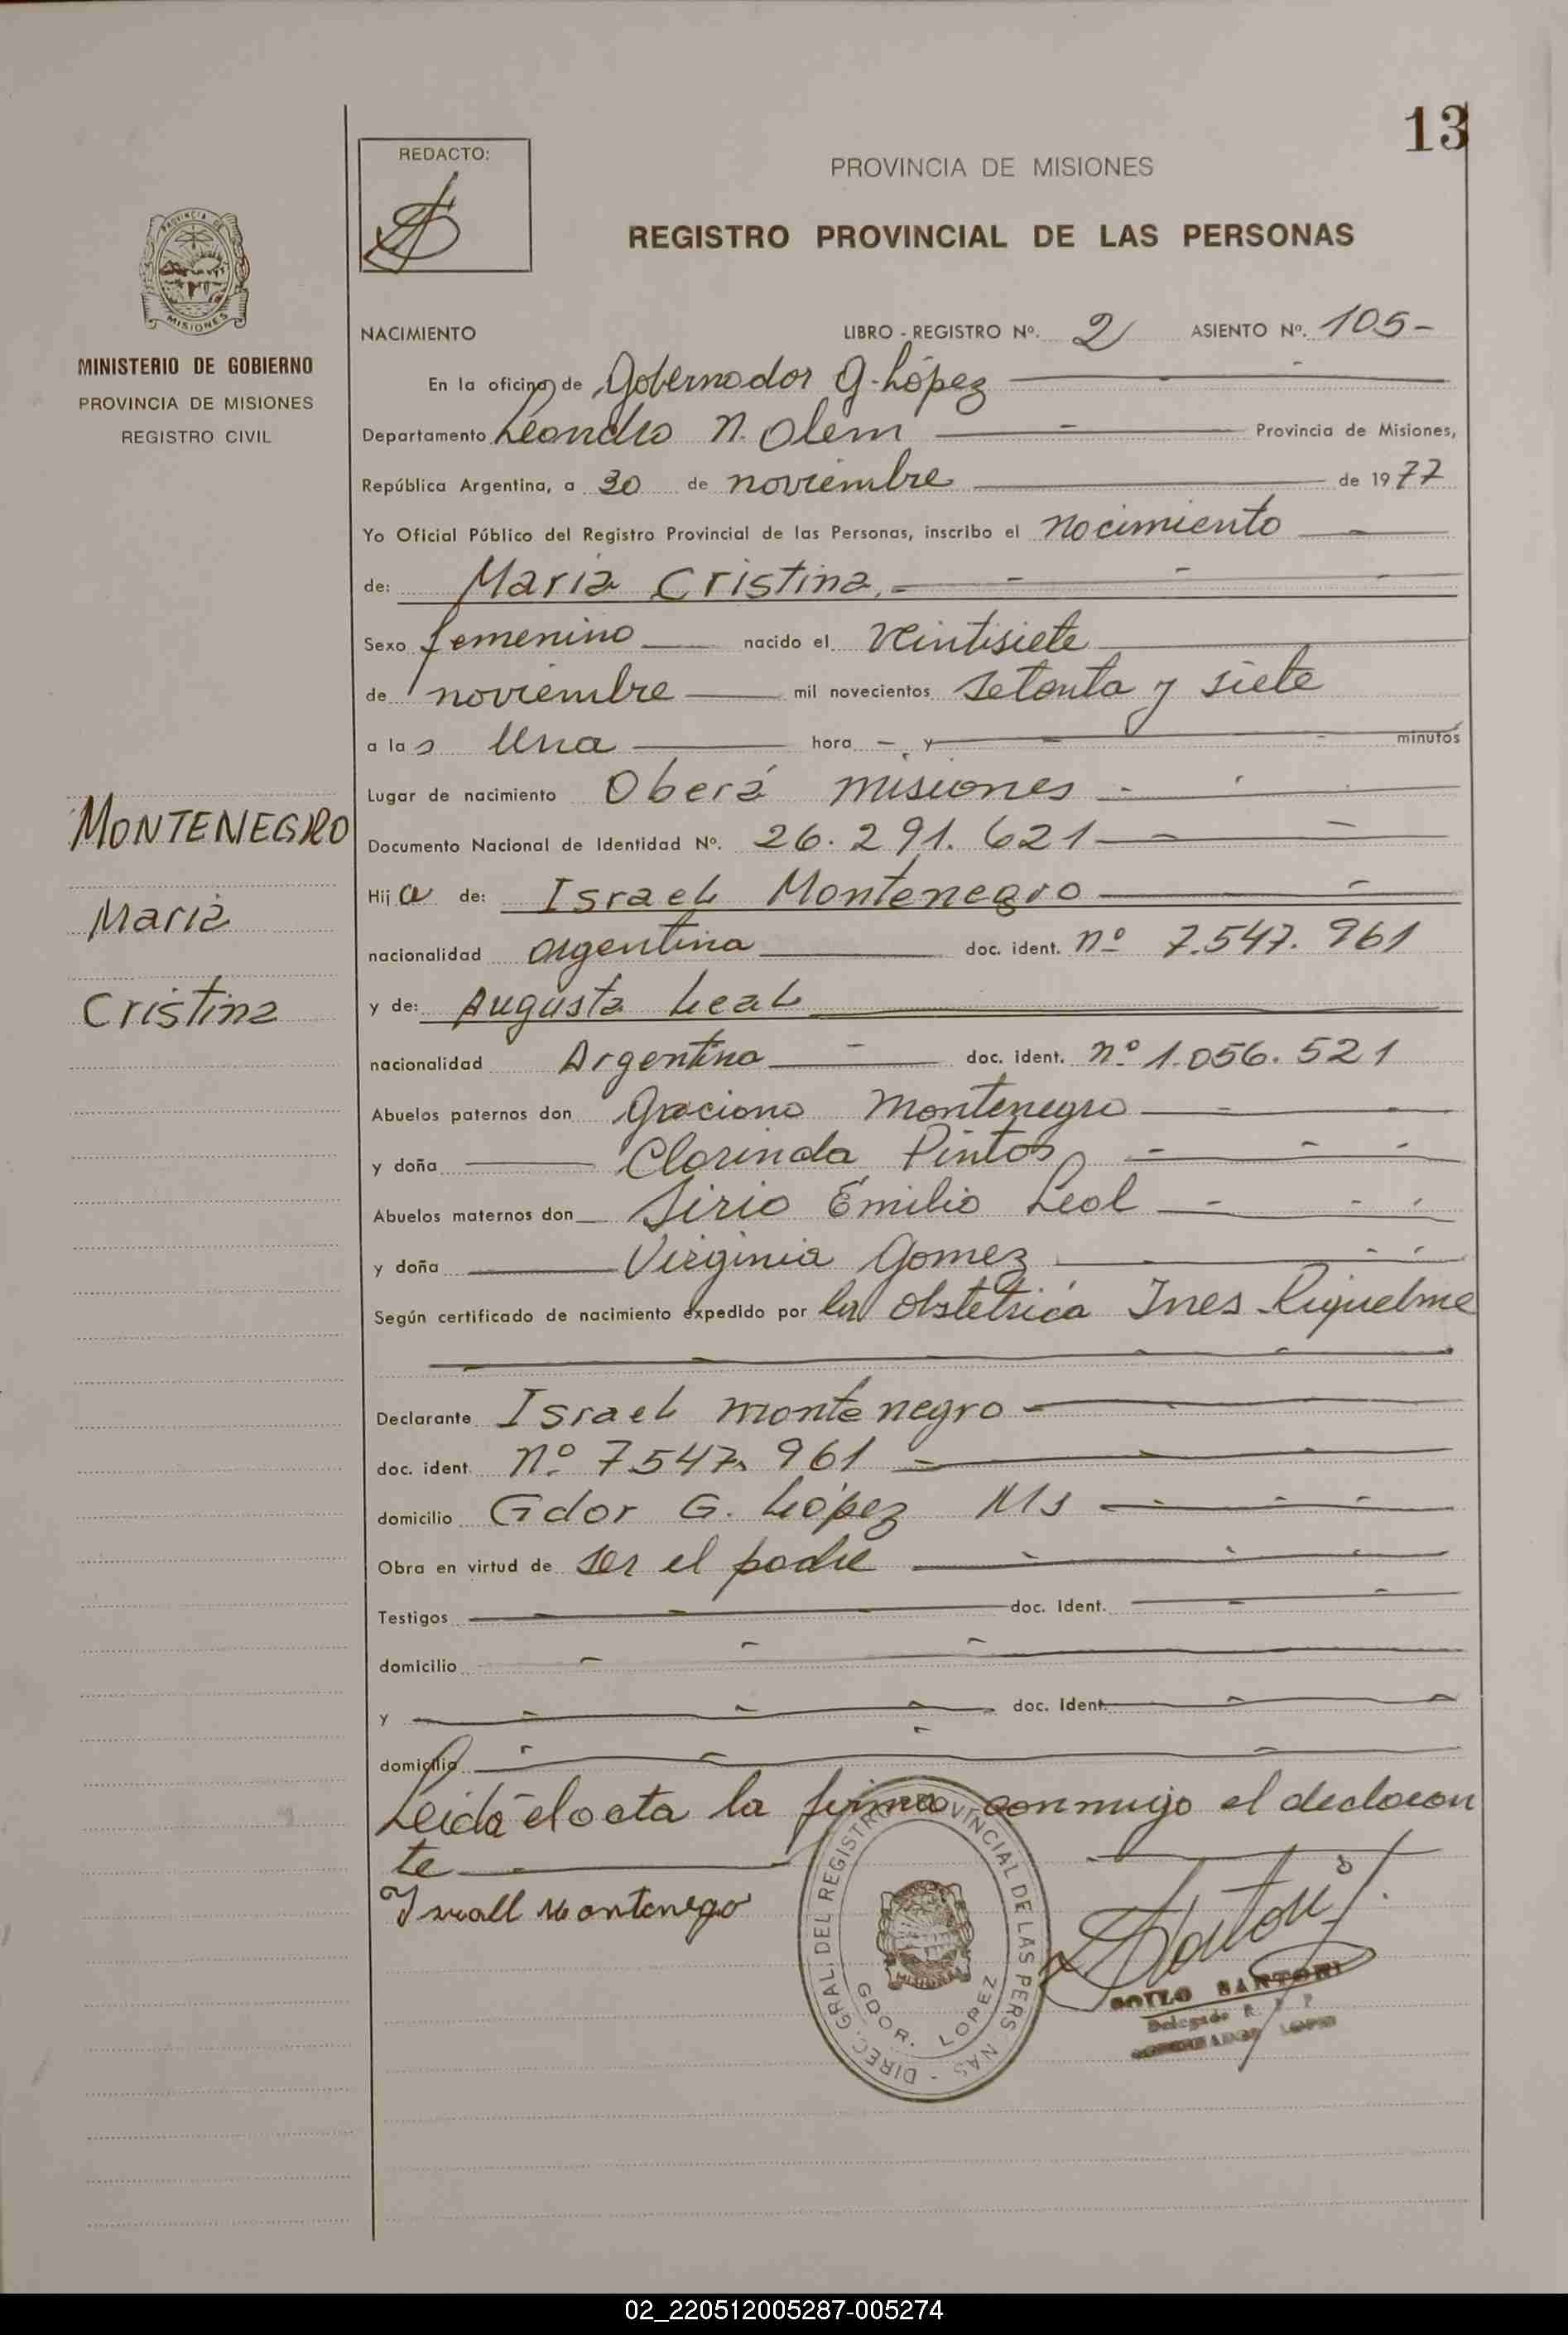 13
REDACTO:
PROVINCIA DE MISIONES
REGISTRO PROVINCIAL DE LAS PERSONAS
PROVINCIA DE
MISIONES
MINISTERIO DE GOBIERNO
PROVINCIA DE MISIONES
REGISTRO CIVIL
NACIMIENTO LIBRO - REGISTRO Nº. 2 ASIENTO Nº. 105-
En la oficina de Gobernador G. López
Departamento Leandro N. Alem Provincia de Misiones,
República Argentina, a 30 de noviembre de 1977
Yo Oficial Público del Registro Provincial de las Personas, inscribo el Nacimiento
de: Maria Cristina.
Sexo femenino nacido el veintisiete
de noviembre mil novecientos setenta y siete
a las Una hora - y minutos
Lugar de nacimiento Oberá misiones
Documento Nacional de Identidad Nº. 26.291.621
Hija de: Israel Montenegro
nacionalidad argentina doc. ident. nº 7.547.961
y de: Augusta Leal
nacionalidad Argentina doc. ident. nº 1.056.521
Abuelos paternos don Graciano Montenegro
y doña Clorinda Pintos
Abuelos maternos don Sirio Emilio Leal
y doña Virginia Gomez
Según certificado de nacimiento expedido por la obstétrica Ines Riquelme
Declarante Israel montenegro
doc. ident. nº 7.547.961
domicilio Gdor G. López Ms
Obra en virtud de ser el padre
Testigos doc. Ident.
domicilio
y doc. Ident.
domicilio
Leida el acta la firma conmigo el declaran
te
Israll Montenego
MONTENEGRO
Maria
Cristina
DIREC. GRAL. DEL REGISTRO PROVINCIAL DE LAS PERSONAS -
MISIONES
GDOR. LOPEZ
SANTORI
Delegado R. P. P.
GOBERNADOR LOPEZ
02_220512005287-005274